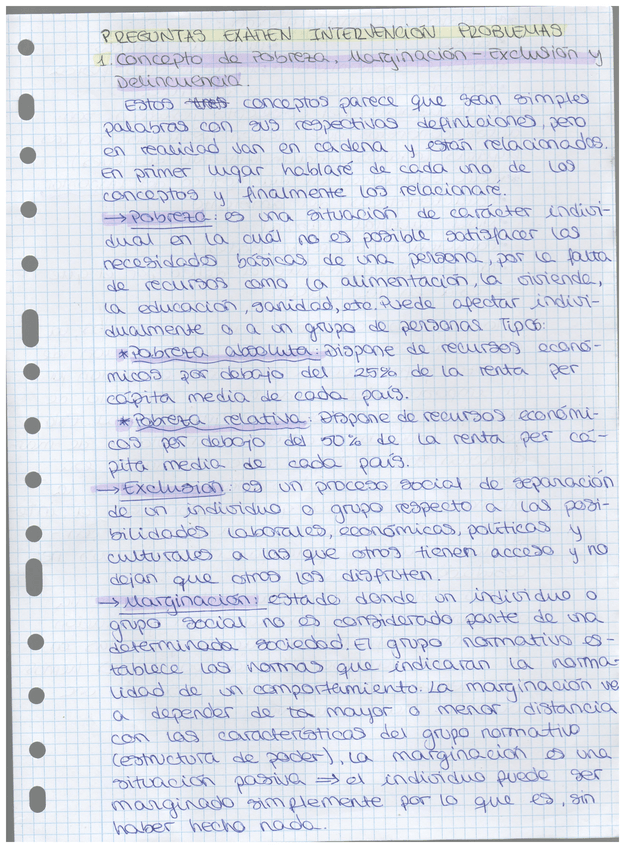 PREGUNTAS EXAMEN INTERVENCIÓN PROBLEMAS
1. Concepto de Pobreza, Marginación - Exclusión y
Delincuencia.
Estos tres conceptos parece que sean simples
palabras con sus respectivas definiciones, pero
en realidad van en cadena y están relacionados.
En primer lugar hablaré de cada uno de los
conceptos y finalmente los relacionaré.
→ Pobreza: es una situación de carácter indivi-
dual en la cuál no es posible satisfacer las
necesidades básicas de una persona, por la falta
de recursos como la alimentación, la vivienda,
la educación, sanidad, etc. Puede afectar indivi-
dualmente o a un grupo de personas Tipos:
* Pobreza absoluta: Dispone de recursos econó-
micos por debajo del 25% de la renta per
cápita media de cada país.
* Pobreza relativa: Dispone de recursos económi-
cos por debajo del 50% de la renta per cá-
pita media de cada país.
→ Exclusión: es un proceso social de separación
de un individuo o grupo respecto a las posi-
bilidades laborales, económicas, políticas y
culturales a las que otros tienen acceso y no
dejan que otros los disfruten.
→ Marginación: estado donde un individuo o
grupo social no es considerado parte de una
determinada sociedad. El grupo normativo es-
tablece las normas que indicarán la norma-
lidad de un comportamiento. La marginación ve
a depender de la mayor o menor distancia
con las características del grupo normativo
(estructura de poder). La marginación es una
situación pasiva ⇒ el individuo puede ser
marginado simplemente por lo que es, sin
haber hecho nada.